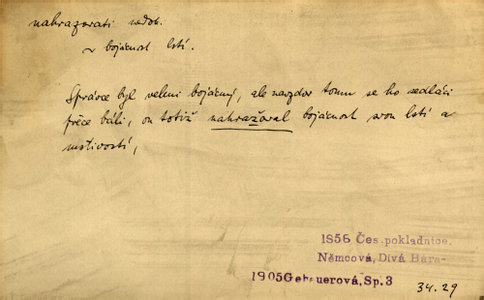 nahrazovati nedok.
~ bojácnost lstí.
Správce byl velmi bojácný, ale navzdor tomu se ho sedláci
přece báli, on totiž nahražoval bojácnost svou lstí a
mstivostí,
1856 Čes. pokladnice.
Němcová, Divá Bára-
1905 Gebauerová, Sp. 3
34.29